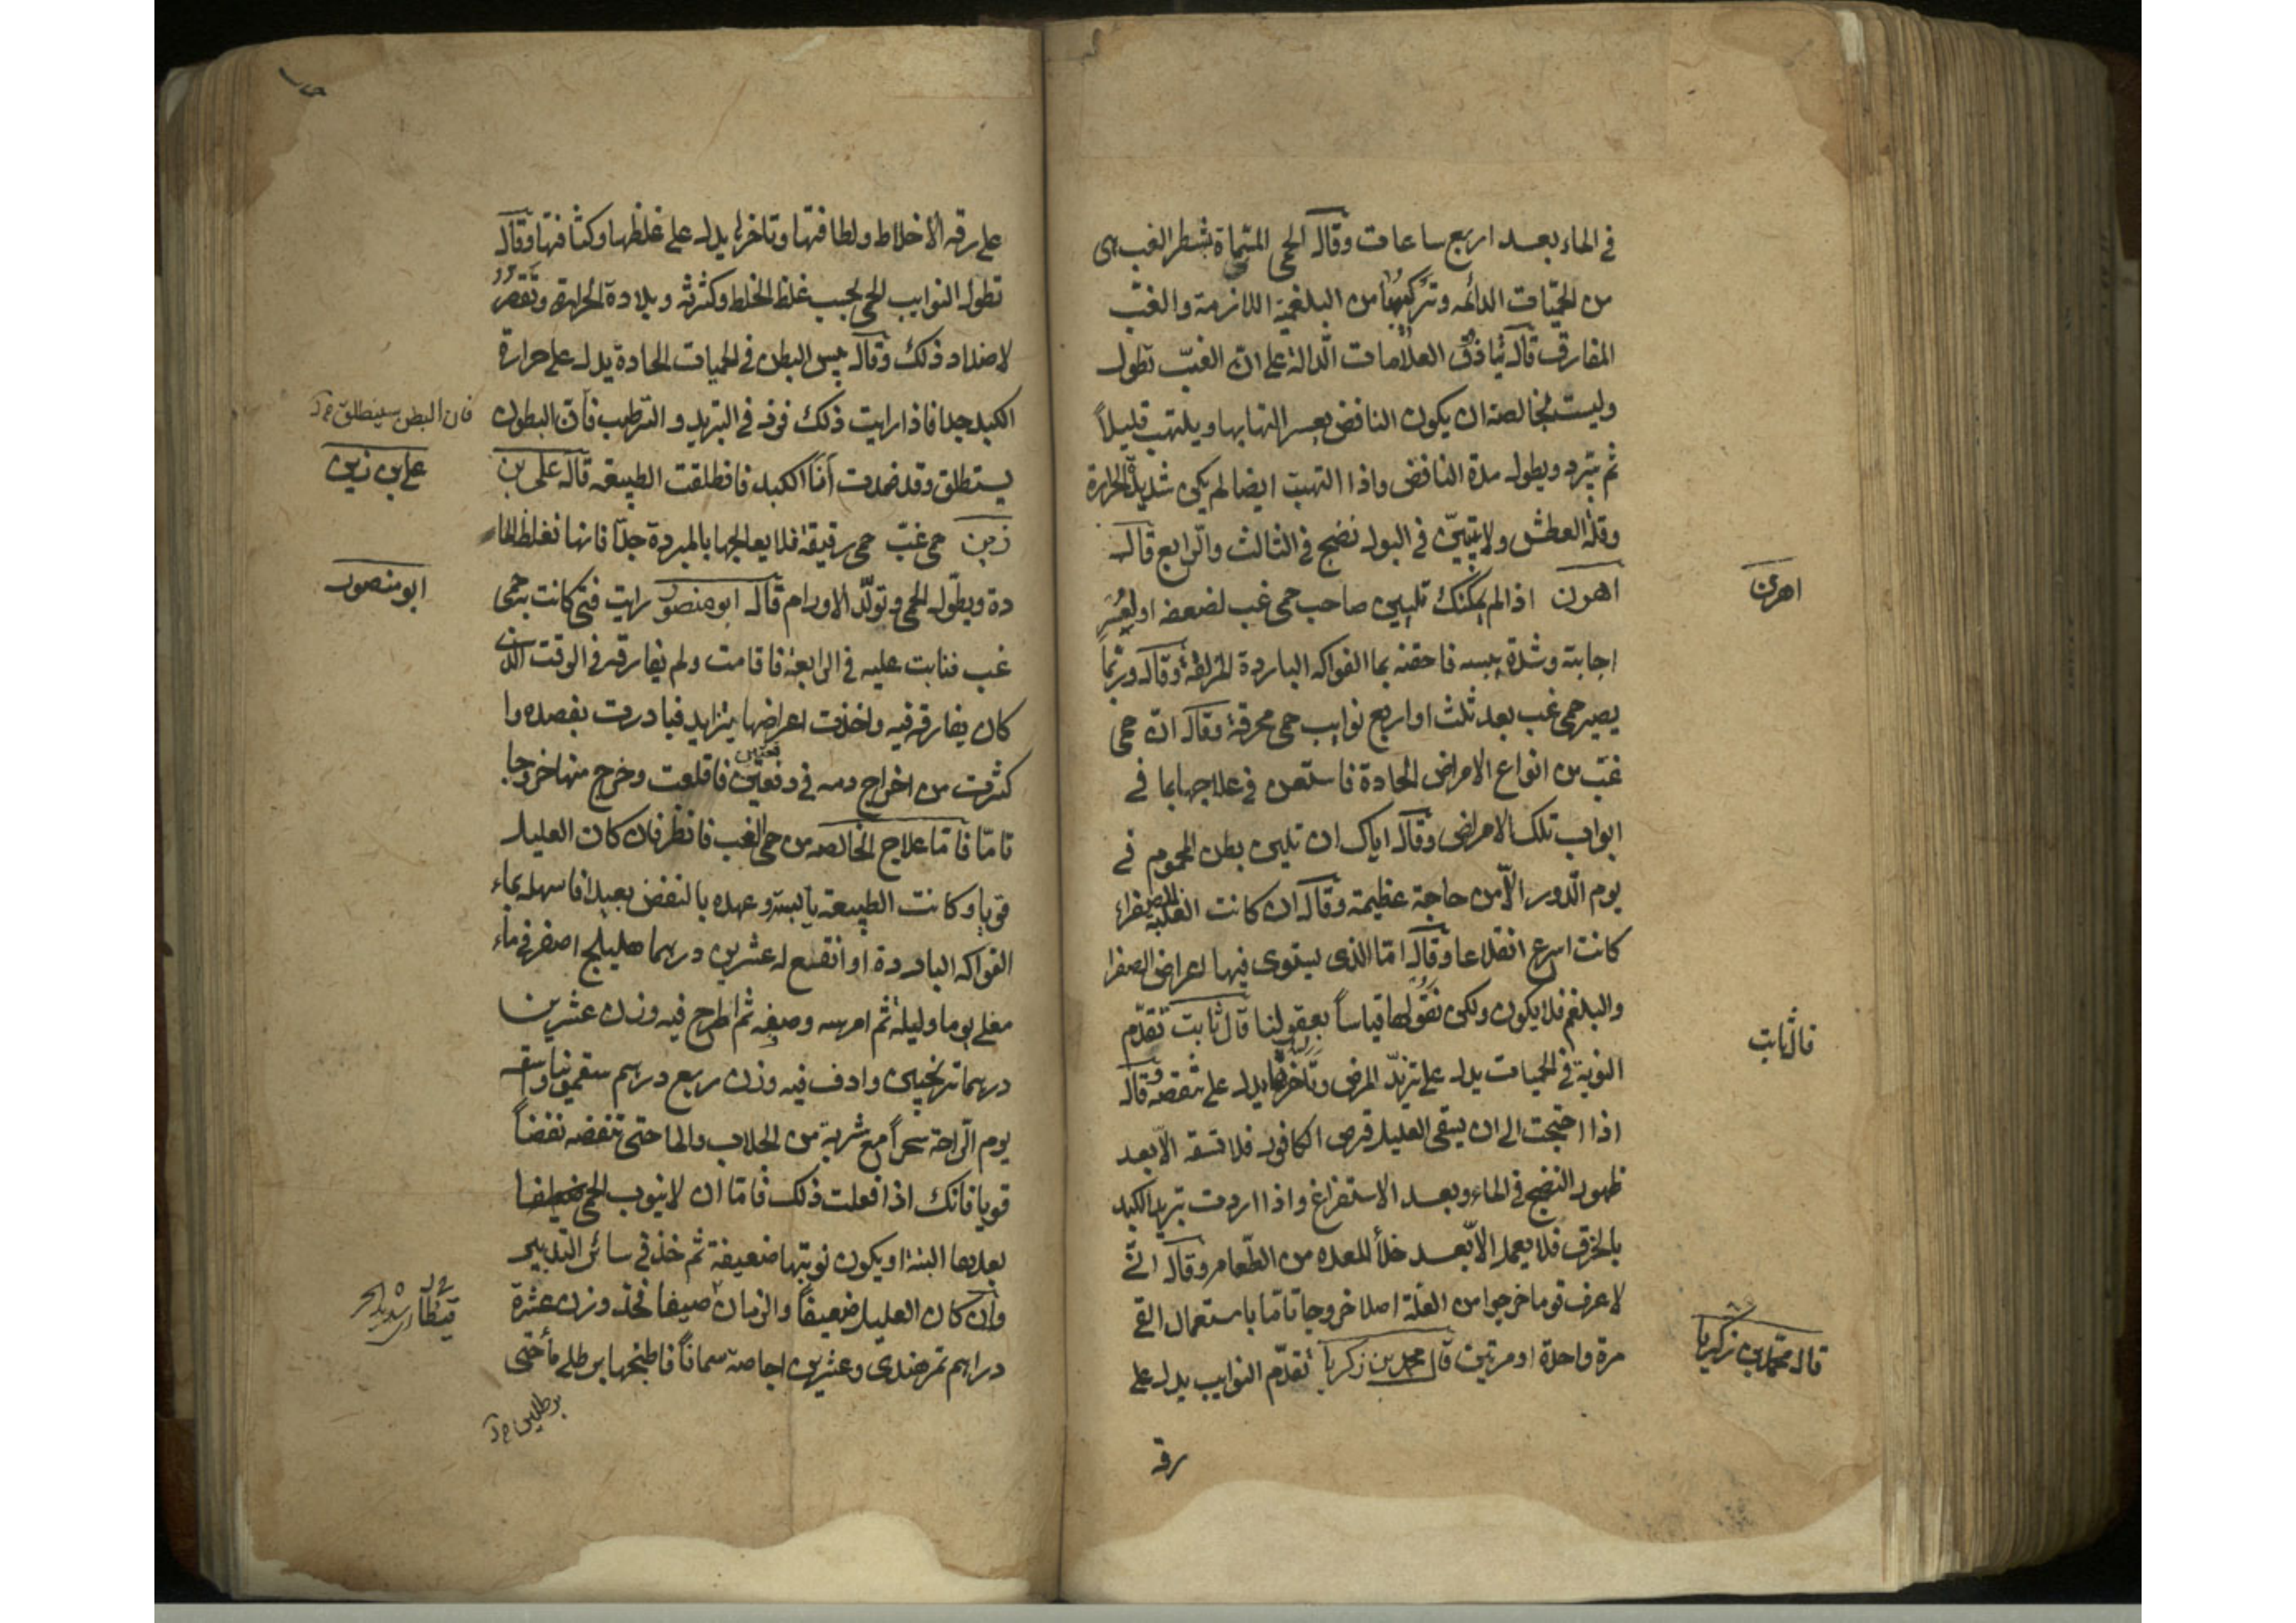 في الماء بعد اربع ساعات وقال الحمى المسماة بشطر الغب هى
من الحميات الدائمه وتركيبها من البلغمية اللازمة والغب
المفارق قال تياذق العلامات الدالة على ان الغب تطول
وليست بخالصة ان يكون النافض يعسر التهابها ويلتهب قليلاً
ثم تبرد ويطول مدة النافض واذا التهبت ايضا لم يكن شديد الحرارة
وقلة العطش ولا يتبين في البول نضج في الثالث والرابع قال
اهرن اذا لم يمكنك تليين صاحب حمى غب لضعفه او لعسر
اجابته وشدة يبسه فاحقنه بما الفواكه الباردة المزلقة وقال وربما
يصير حمى غب بعد ثلث او اربع نوايب حمى محرقة وقال ان حمى
غب من انواع الامراض الحادة فاستعن في علاجها بما في
ابواب تلك الامراض وقال اياك ان تلين بطن المحموم في
يوم الدور الا من حاجة عظيمة وقال ان كانت الغلبة للصفراء
كانت اسرع انقلاعا وقال اما الذى يستوى فيها اعراض الصفرا
والبلغم فلا يكون ولكن نقولها قياساً بعقولنا قال ثابت تقدم
النوبة في الحميات يدل على تزيد المرض وتأخرها يدل على تنقصه وقال
اذا احتجت الى ان يسقى العليل قرص الكافور فلا تسقه الا بعد
ظهور النضج في الماء وبعد الاستفراغ واذا اردت تبريد الكبد
بالخرق فلا يعمل الا بعد خلأ المعده من الطعام وقال انى
لاعرف قوما خرجوا من العلة اصلا خروجا تاما باستعمال القى
مرة واحدة او مرتين قال محمد بن زكريا تقدم النوايب يدل على
رقه
اهرن
قال ثابت
قال محمد بن زكريا
على رقه الاخلاط ولطافتها وتاخرها يدل على غلظها وكثافتها وقال
تطول النوايب للحمى بحسب غلظ الخلط وكثرته وبلادة الحرارة وتقصر
لاضداد ذلك وقال يبس البطن في الحميات الحادة يدل على حرارة
الكبد جدا فاذا رايت ذلك فزد في التبريد والترطيب فان البطون
يستطلق وقد ضمدت أنا الكبد فانطلقت الطبيعه قال على بن
زين حمى غب حمى رقيقة فلا يعالجها بالمبردة جدا فانها تغلظ الما
دة ويطول الحمى وتولد الاورام قال ابو منصور رايت فتى كانت به حمى
غب فنابت عليه في الرابعة فاقامت ولم يفارقه في الوقت الذى
كان يفارقه فيه واخذت اعراضها يتزايد فبادرت بفصده وا
كثرت من اخراج دمه في دفعتين فاقلعت وخرج منها خروجا
تاما فاما علاج الخالصه من حمى الغب فانظر فان كان العليل
قويا وكانت الطبيعة يابسة وعهده بالنفض بعيدا فاسهله بماء
الفواكه الباردة او انقع له عشرين درهما هليلج اصفر في ماء
مغلى يوما وليلة ثم امرسه وصفه ثم اطرح فيه وزن عشرين
درهما ترنجبين وادف فيه وزن ربع درهم سقمونيا واسقه
يوم الراحة سحراً مع شربة من الجلاب والما حتى تنفضه نفضاً
قويا فانك اذا فعلت ذلك فاما ان لا ينوب الحمى
بعدها البتة او يكون نوبتها ضعيفة ثم خذ في سائر التدبير
وان كان العليل ضعيفاً والزمان صيفا فخذ وزن عشرة
دراهم تمر هندى وعشرين اجاصة سمانا فاطبخها برطلى ماء حتى
فان البطن سينطلق
على بن زين
ابو منصور
برطلين